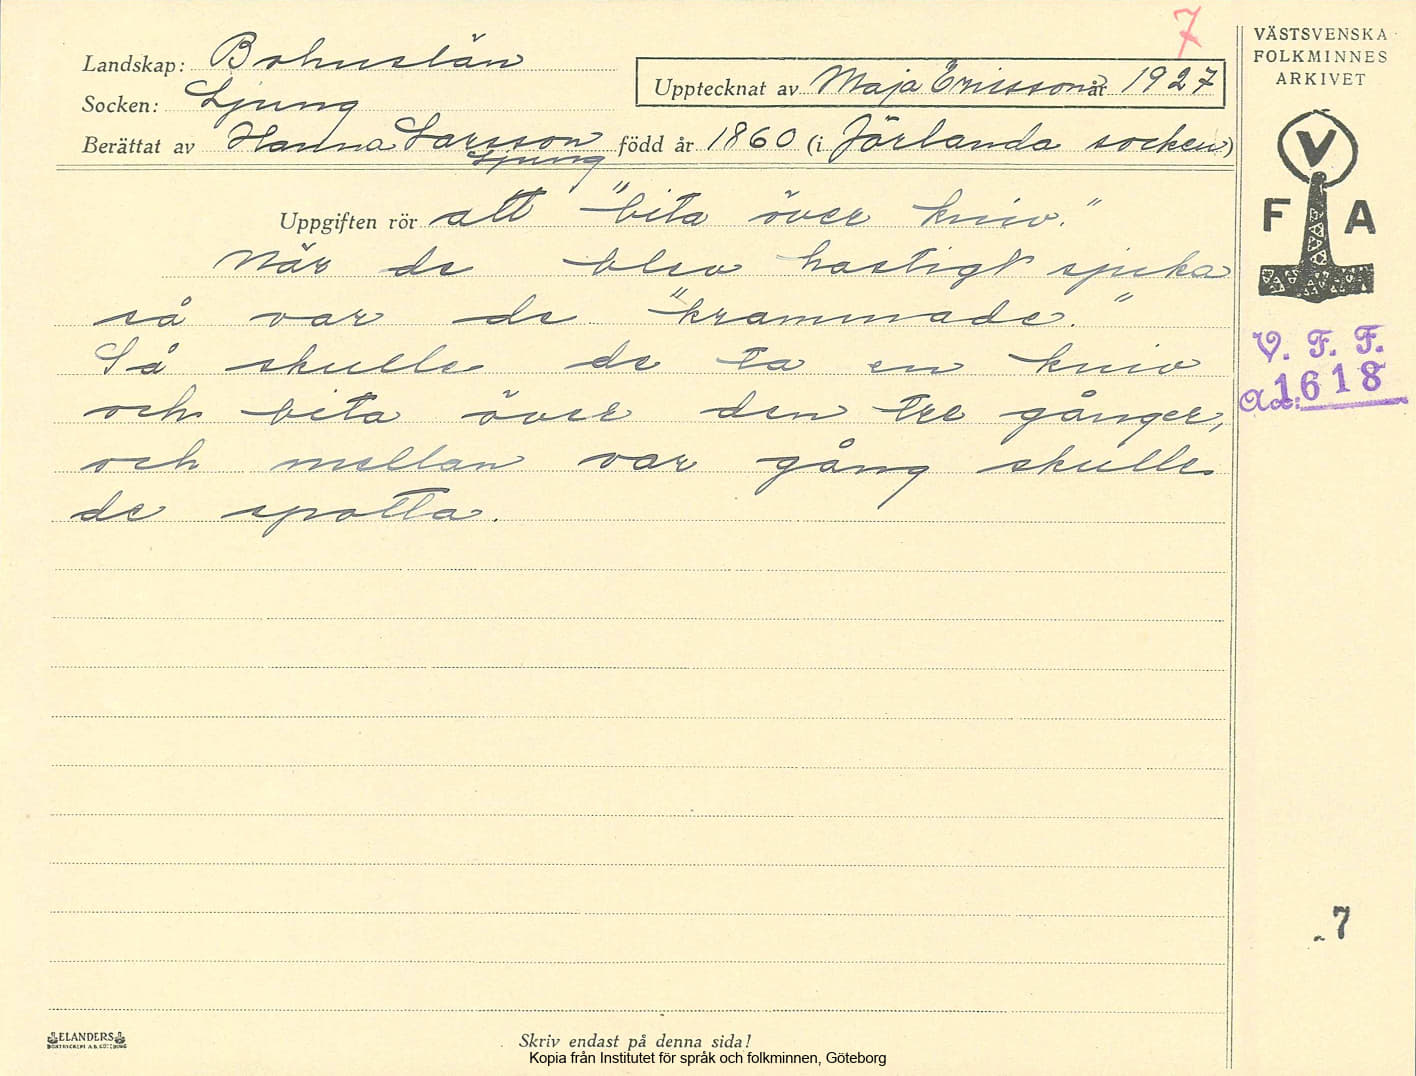 7
Landskap: Bohuslän
Socken: Ljung
Upptecknat av Maja Ericsson år 1927
Berättat av Hanna Larsson född år 1860 (i Jörlanda socken)
Ljung
Uppgiften rör att "bita över kniv."
När de blev hastigt sjuka
så var de "krammade."
Så skulle de ta en kniv
och bita över den tre gånger,
och mellan var gång skulle
de spotta.
VÄSTSVENSKA
FOLKMINNES
ARKIVET
V
F A
V. F. F.
Acc: 1618
7
ELANDERS
BOKTRYCKERI A.B. GÖTEBORG
Skriv endast på denna sida!
Kopia från Institutet för språk och folkminnen, Göteborg